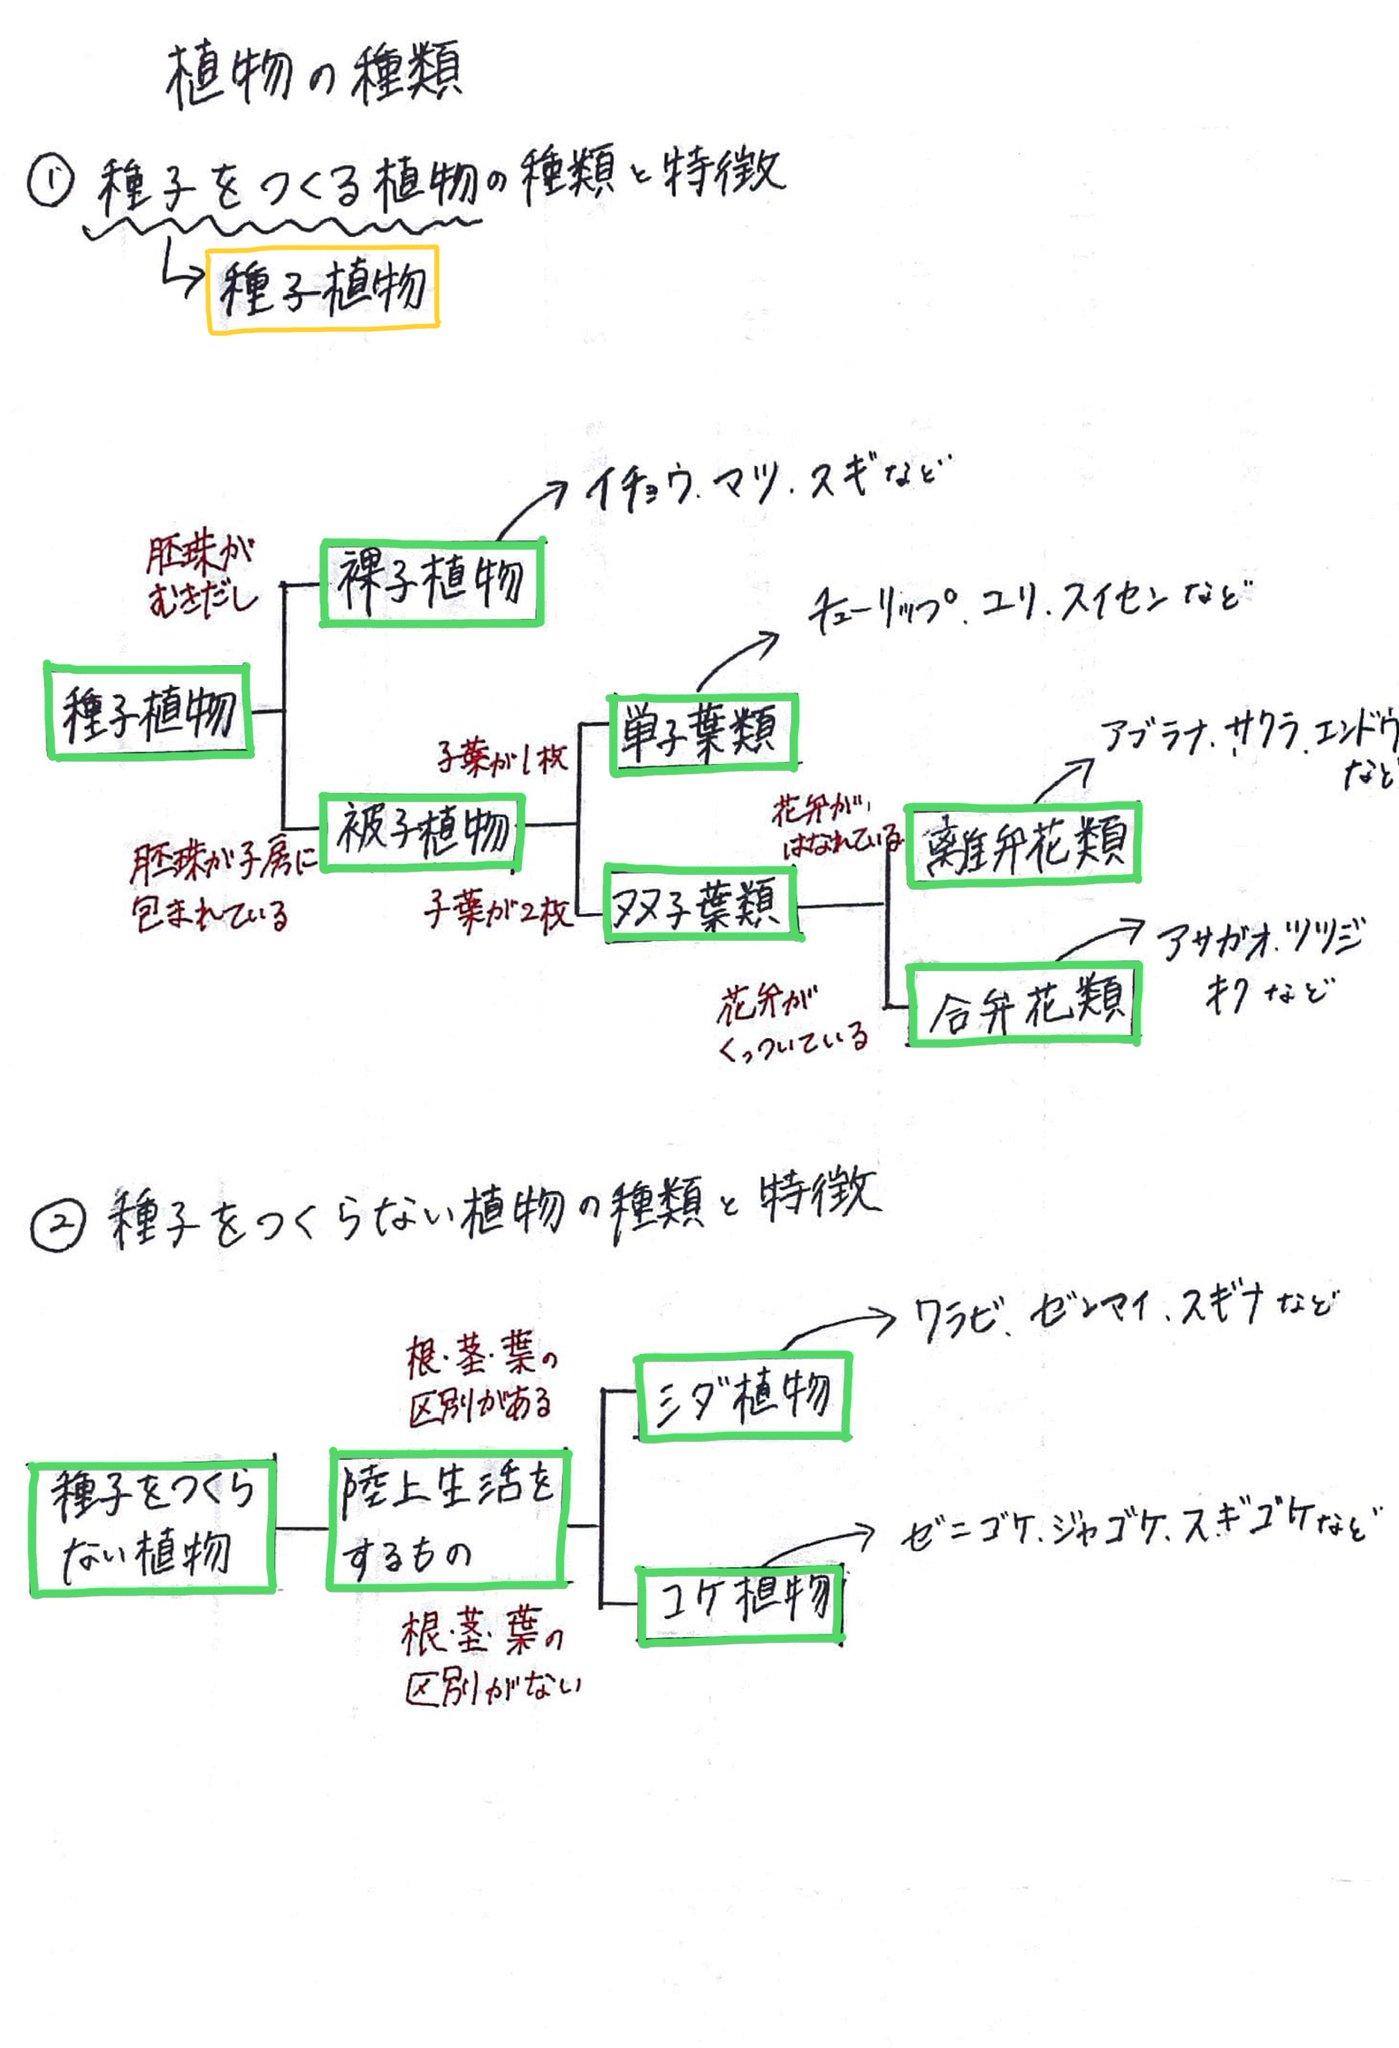 植物の種類
① 種子をつくる植物の種類と特徴
種子植物
イチョウ、マツ、スギなど
胚珠が
むきだし
裸子植物
チューリップ、ユリ、スイセンなど
種子植物
単子葉類
子葉が1枚
アブラナ、サクラ、エンドウ
など
被子植物
花弁が
はなれている
離弁花類
胚珠が子房に
包まれている
子葉が2枚
双子葉類
アサガオ、ツツジ
キクなど
花弁が
くっついている
合弁花類
② 種子をつくらない植物の種類と特徴
ワラビ、ゼンマイ、スギナなど
根・茎・葉の
区別がある
シダ植物
種子をつくら
ない植物
陸上生活を
するもの
ゼニゴケ、ジャゴケ、スギゴケなど
コケ植物
根・茎・葉の
区別がない